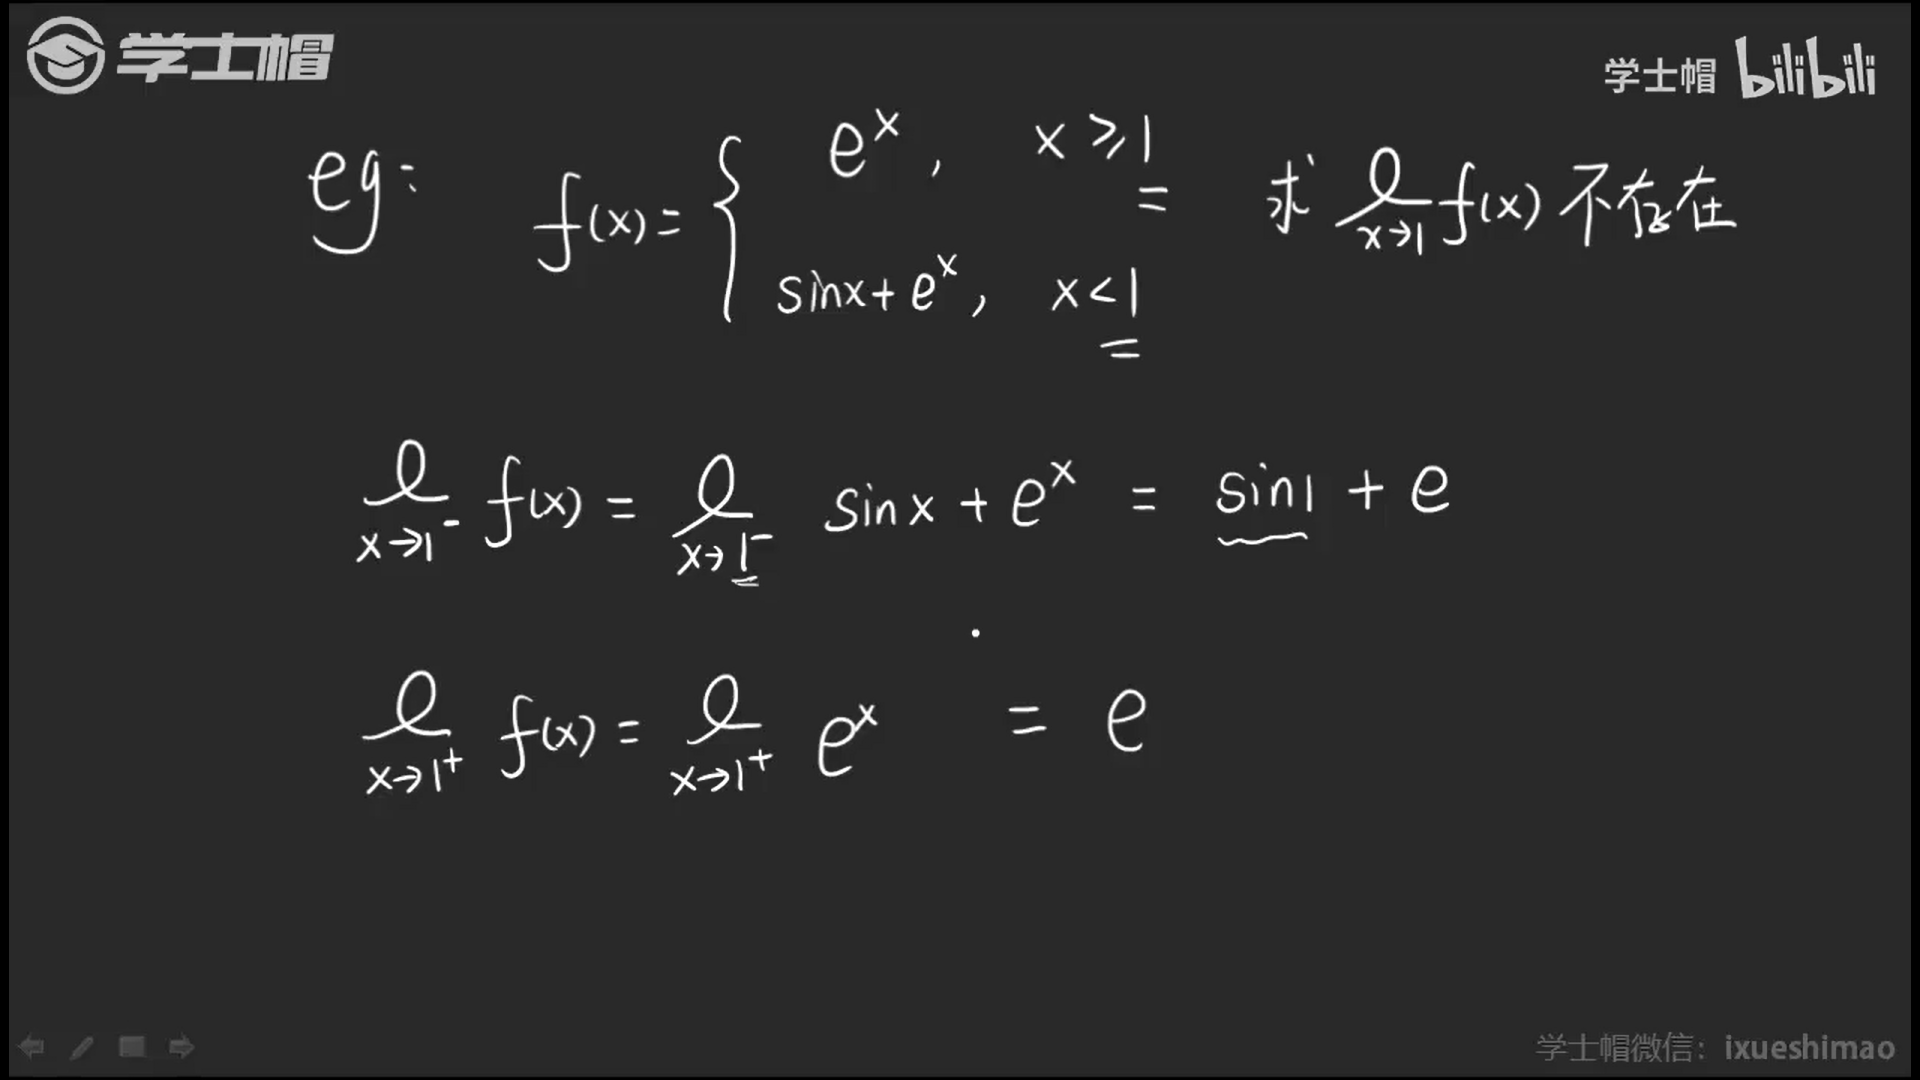 学士帽
学士帽 bilibili
eg: f(x) = { e^x , x ≥ 1 求 lim x→1 f(x) 不存在
sinx + e^x , x < 1
lim x→1⁻ f(x) = lim x→1⁻ sinx + e^x = sin1 + e
lim x→1⁺ f(x) = lim x→1⁺ e^x = e
学士帽微信：ixueshimao